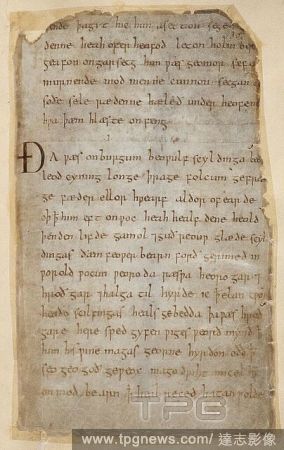 þagyt hie him asetton segen
denne heah ofer heafod leton holm
geafon on garsecg him ƿæs geomor sefa
murnende mod men ne cunnon secgan
soðe sele rædenne hæleð under heofen
hƿa þæm hlæste onfeng.
Ða ƿæs on burgum beoƿulf scyldinga
leod cyning longe þrage folcum gefræ
ge fæder ellor hƿearf aldor of earde
oþ ꝥ him eft onƿoc heah healfdene heold
þenden lifde gamol ⁊ guð reouƿ glæde scyl
dingas ðæm feoƿer bearn forð gerimed in
ƿorold ƿocun ƿeoroda ræsƿa heoro gar ⁊
hroð gar ⁊ halga til hyrde ic ꝥ elan
heaðo scilfingas heals gebedda þa ƿæs hroð
gare here sped gyfen ƿiges ƿeorð mynd ꝥ
him his ƿine magas georne hyrdon oðð ꝥ
seo geogoð geƿeox mago driht micel
on mod be arn ꝥ heal reced hatan ƿolde
TPG
www.tpgnews.com/達志影像